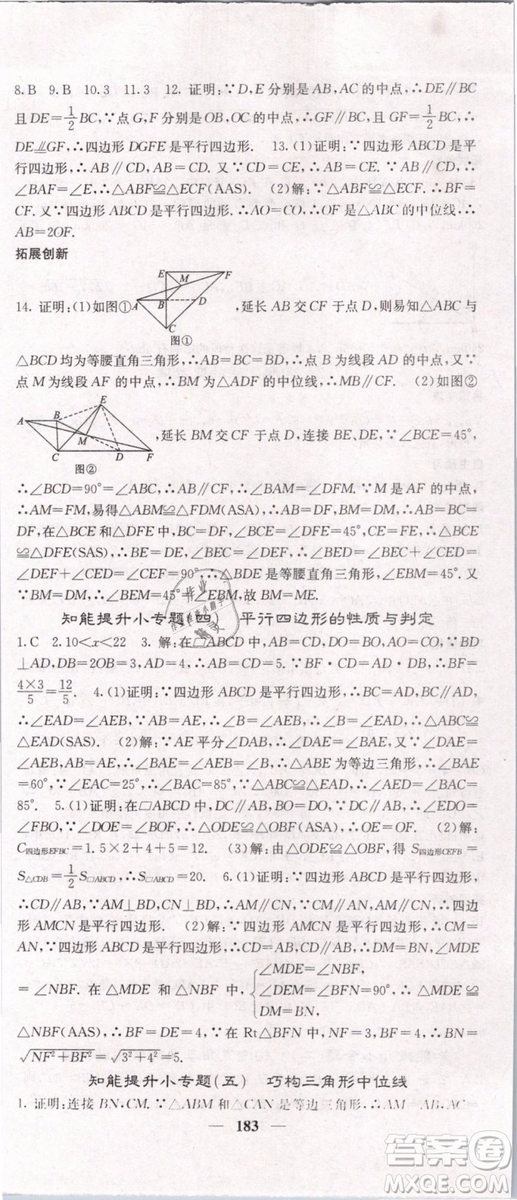 8.B 9.B 10.3 11.3 12. 证明:∵D,E分别是AB,AC的中点,∴DE∥BC
且DE=1/2BC,∵点G,F分别是OB,OC的中点,∴GF∥BC,且GF=1/2BC,∴
DE∥=GF,∴四边形DGFE是平行四边形. 13.(1)证明:∵四边形ABCD是平
行四边形,∴AB∥CD,AB=CD. 又∵CE=CD,∴AB=CE. ∵AB∥CD,∴
∠BAF=∠E,∴△ABF≌△ECF(AAS). (2)解:∵△ABF≌△ECF,∴BF=CF.
又∵四边形ABCD是平行四边形. ∴AO=CO. ∴OF是△ABC的中位线,∴
AB=2OF.
拓展创新
14. 证明:(1)如图① E F M A B D C 图① ,延长AB交CF于点D,则易知△ABC与
△BCD均为等腰直角三角形,∴AB=BC=BD,∴点B为线段AD的中点,又∵
点M为线段AF的中点,∴BM为△ADF的中位线,∴BM∥CF. (2)如图②
A B E M C D F 图② ,延长BM交CF于点D,连接BE,DE,∵∠BCE=45°,
∴∠BCD=90°=∠ABC,∴AB∥CF,∴∠BAM=∠DFM. ∵M是AF的中点,
∴AM=FM,易得△ABM≌△FDM(ASA),∴AB=DF,∵AB=BC,∴BC=
DF,在△BCE和△DFE中,BC=DF,∠BCE=∠DFE=45°,CE=FE,∴△BCE≌
△DFE(SAS),∴BE=DE,∠BEC=∠DEF,∴∠BED=∠BEC+∠CED=
∠DEF+∠CED=∠CEF=90°,∴△BDE是等腰直角三角形,又∵BM=DM,
∴BM=ME=1/2BD,故BM=ME.
知能提升小专题(四) 平行四边形的性质与判定
1.C 2.10<x<22 3. 解:在▱ABCD中,∵AB∥CD,∴AB=CD=5. ∵BD
⊥AD,BD=4,∴AD=3. ∵四边形ABCD是平行四边形,∴BC=AD=3,∴DF=
4×3/5=12/5. 4.(1)证明:∵四边形ABCD是平行四边形,∴AD∥BC,AD=BC,
∴∠EAD=∠AEB,∵AB=AE,∴∠B=∠AEB,∴∠B=∠EAD,∴△ABC≌△
EAD(SAS). (2)解:∵AE平分∠DAB,∴∠DAE=∠BAE. 又∵∠DAE=
∠AEB,∴∠BAE=∠AEB=∠B,∴△ABE为等边三角形,∴∠BAE
=60°,∵∠EAC=25°,∴∠BAC=85°,∵△ABC≌△EAD,∴∠AED=∠BAC=
85°. 5.(1)证明:在▱ABCD中,∵AD∥BC,∴∠EDO=∠FBO,∵∠EDO=
∠FBO,∵∠DOE=∠BOF,OD=OB,∴△DOE≌△BOF(ASA). (2)解:
C四边形EFBC=1.5×2+4+5=12. (3)解:∵△DOE≌△BOF,得S四边形CEFB=
S△CDB=1/2S▱ABCD,∴S▱ABCD=20. 6.(1)证明:∵四边形ABCD是平行四边形,
∴CD∥AB,∵AM⊥BD,CN⊥BD,∴AM∥CN,∵CM∥AN,AM∥CN,∴四边
形AMCN是平行四边形. (2)解:∵四边形AMCN是平行四边形,∴CM=
AN,∵四边形ABCD是平行四边形,∴CD=AB,CD∥AB,∴DM=BN,∠MDE
=∠NBF. 在△MDE和△NBF中,{∠MDE=∠NBF,
∠DEM=∠BFN=90°,∴△MDE≌
DM=BN,
△NBF(AAS),∴BF=DE=4,在Rt△BFN中,NF=3,BF=4,∴BN=
√NF²+BF²=√3²+4²=5.
知能提升小专题(五) 巧构三角形中位线
1. 证明:连接BN,CM,∵△ABM和△CAN是等腰直角三角形,∴AM=AB,AC=
183